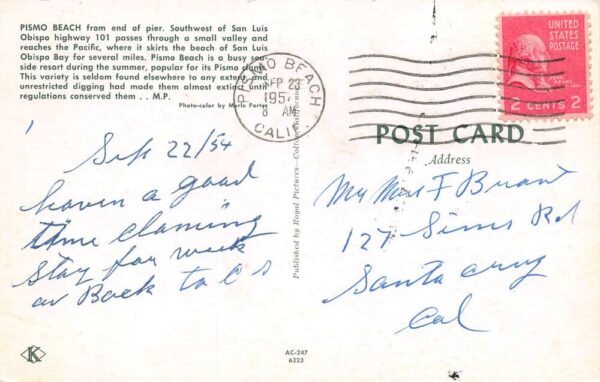 PISMO BEACH from end of pier. Southwest of San Luis
Obispo highway 101 passes through a small valley and
reaches the Pacific, where it skirts the beach of San Luis
Obispo Bay for several miles. Pismo Beach is a busy sea-
side resort during the summer, popular for its Pismo clams.
This variety is seldom found elsewhere to any extent and
unrestricted digging had made them almost extinct until
regulations conserved them . . M.P.
Photo-color by Merle Porter
PISMO BEACH
SEP 23
195
8 AM
CALIF.
UNITED
STATES
POSTAGE
2 CENTS 2
POST CARD
Address
Sep 22/54
haven a good
time claming
stay for week
or Back to C S
Published by Royal Pictures—Colton, California
My Mrs F Bryant
127 Sims Rd
Santa cruz
Cal
K
AC-247
6353